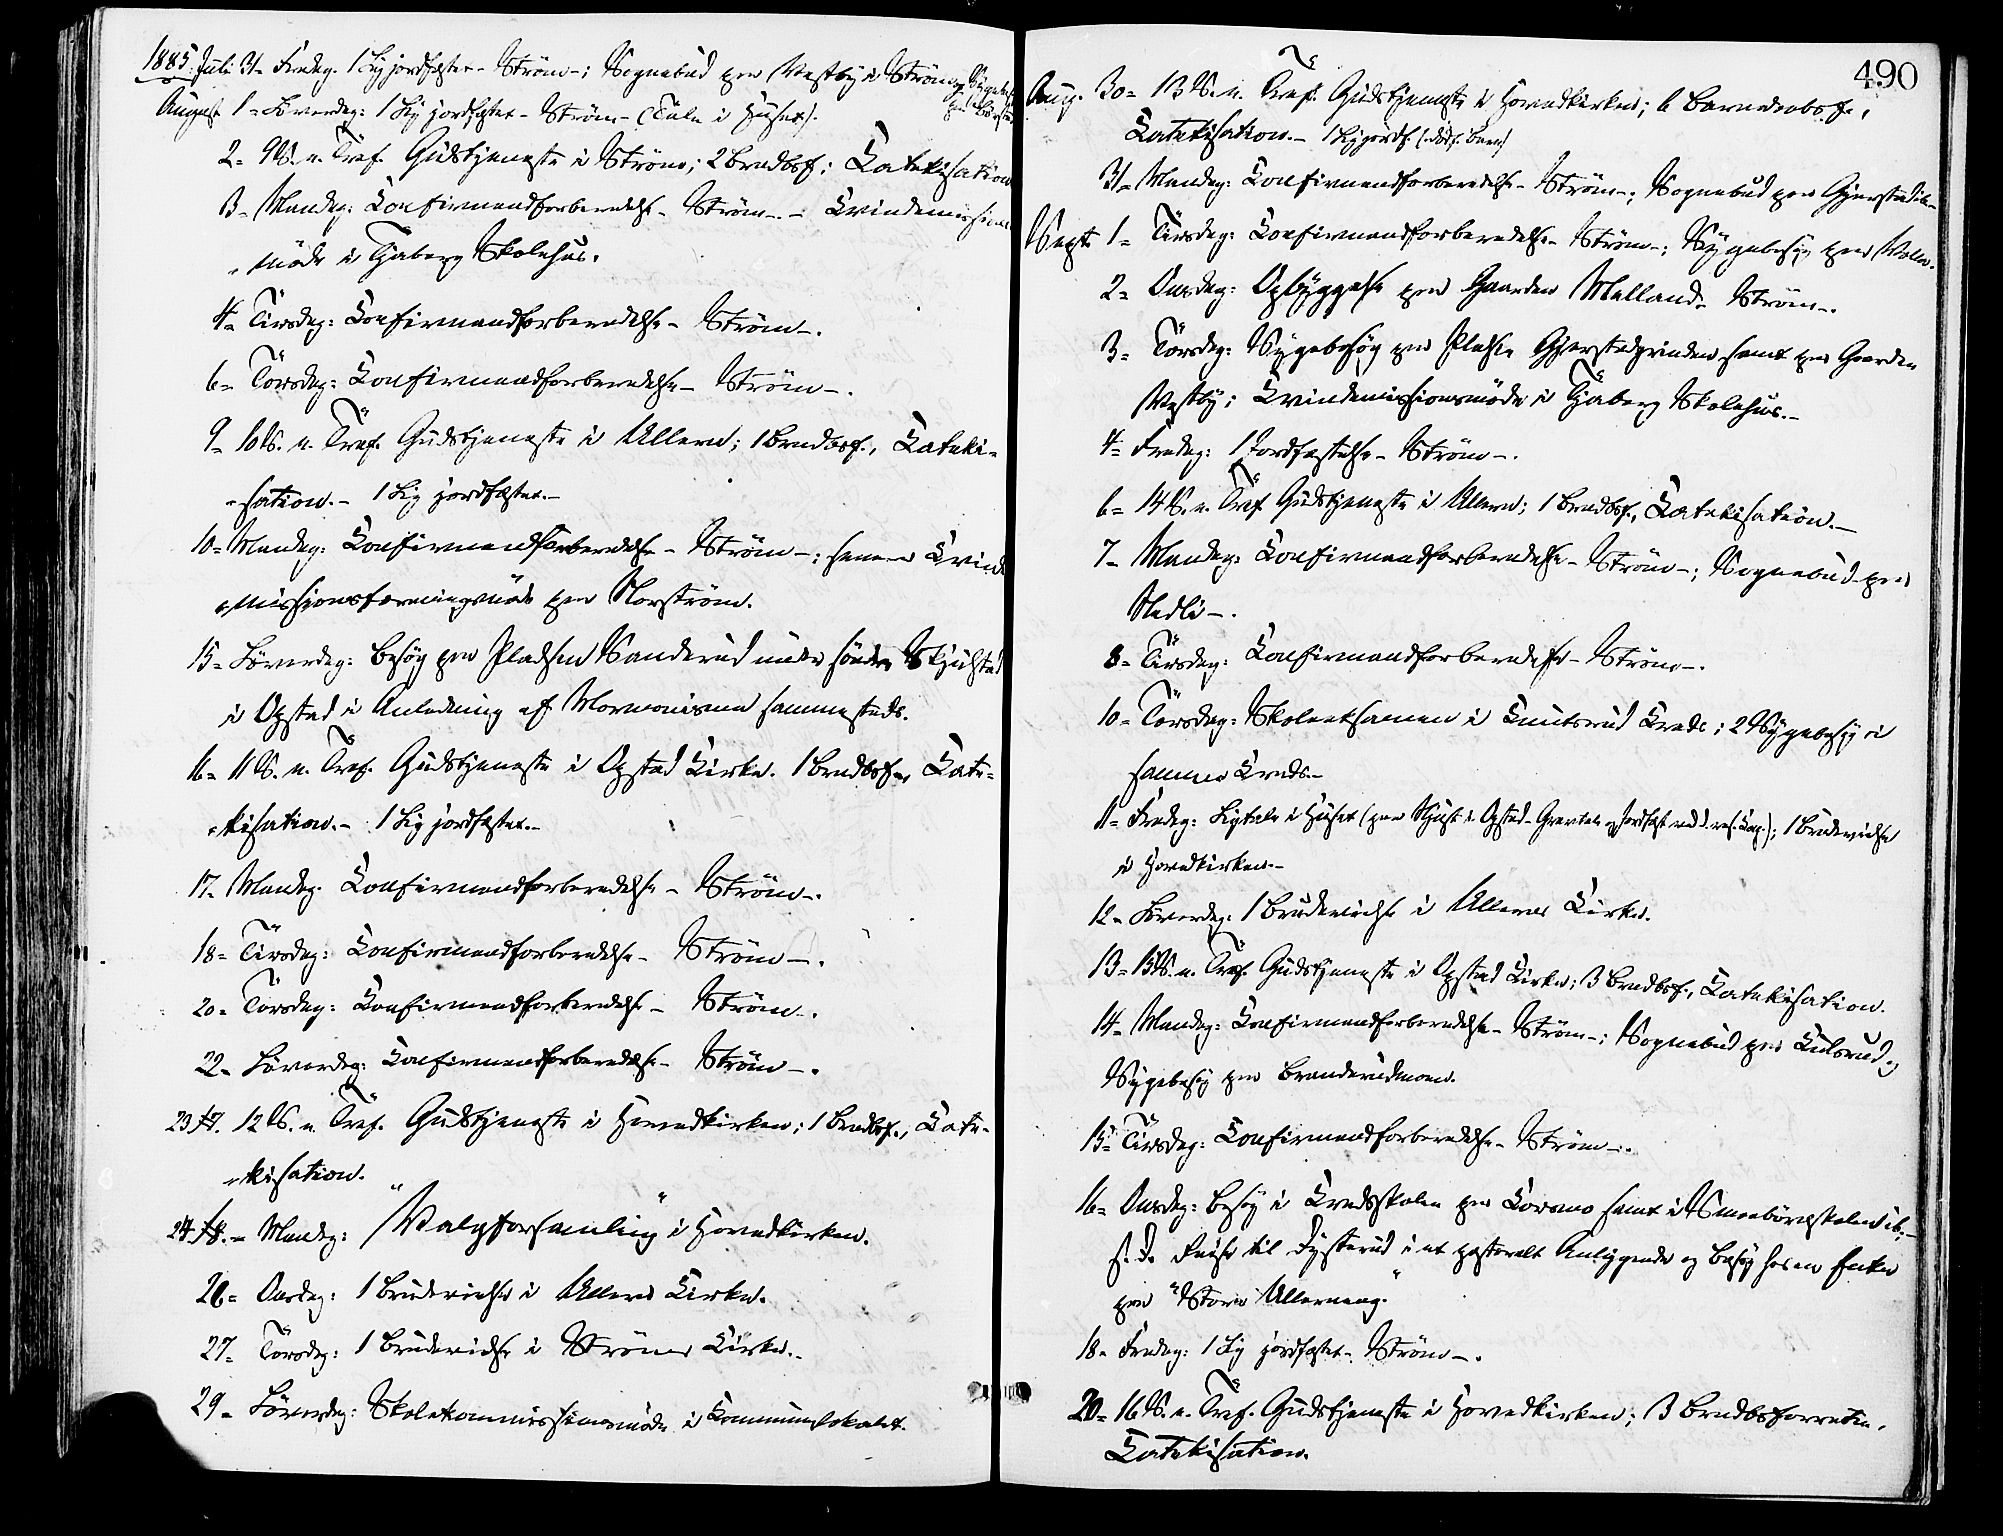 1885. Juli 31- Fredag. 1 Lig jordfæstet - Ström -; Sognebud paa Vestby i Ström og Sygebes.
August 1- Löverdag: 1 Lig jordfæstet - Ström - (Tale i Huset).
2- 9 S. e. Tref. Gudstjeneste i Ström; 2 Brndbsf; Catekisation
3- Mandag: Confirmandforberedelse - Ström -. - Kvindemissions
"möde i Tjaberg Skolehus.
4- Tirsdag: Confirmandforberedelse - Ström -.
6- Törsdag: Confirmandforberedelse - Ström -.
9- 10 S. e. Tref. Gudstjeneste i Ullern; 1 Brndbsf., Cateki-
"sation. - 1 Lig jordfæstet. -
10- Mandag: Confirmandforberedelse - Ström -; senere Kvinde
"missionsforeningsmöde paa Norström.
15- Löverdag: Besög paa Pladsen Sanderud under söndre Skjulstad
i Opstad i Anledning af Mormonisme sammesteds.
16- 11 S. e. Tref. Gudstjeneste i Opstad Kirke. 1 Brndbsf., Cate-
"kisation. - 1 Lig jordfæstet. -
17- Mandag. Confirmandforberedelse - Ström -.
18- Tirsdag: Confirmandforberedelse - Ström -.
20- Törsdag: Confirmandforberedelse - Ström -.
22- Löverdag: Confirmandforberedelse - Ström -.
23 17. 12 S. e. Tref. Gudstjeneste i Hovedkirken; 1 Brndbsf., Cate-
"kisation.
24 18. - Mandag: "Valgforsamling" i Hovedkirken.
26- Onsdag: 1 Brudevielse i Ullerns Kirke.
27- Törsdag: 1 Brudevielse i Ströms Kirke. -
29- Löverdag: Skolekommissionsmöde i Kommunelokalet.
490
Aug. 30- 13 S. e. Tref. Gudstjeneste i Hovedkirken; 6 Barnedaabsf.,
Catekisation. - 1 Lig jordf. (dödf. Barn)
31- Mandag: Confirmandforberedelse - Ström -; Sognebud paa Gjerstad
Sept. 1- Tirsdag: Confirmandforberedelse - Ström -; Sygebesög paa
2- Onsdag: Opbyggelse paa Gaarden Melland - Ström -.
3- Törsdag: Sygebesög paa Pladsen Gjerstadgrinden samt paa Gaarden
Vestby; Kvindemissionsmöde i Tjaberg Skolehus. -
4- Fredag: 1 Jordfæstelse - Ström -.
6- 14 S. e. Tref Gudstjeneste i Ullern; 1 Brndbsf., Catekisation. -
7- Mandag: Confirmandforberedelse - Ström -; Sognebud paa
Nedli -.
8- Tirsdag: Confirmandforberedelse - Ström -.
10- Törsdag: Skoleeksamen i Knutsrud Kreds; 2 Sygebesög i
samme Kreds -
11- Fredag: Ligtale i Huset (paa Skjulst. i Opstad - Gravtale og Jordfæst ved d. res. Cap.); 1 Brudevielse
i Hovedkirken. -
12- Löverdag: 1 Brudevielse i Ullerns Kirke.
13- 15 S. e. Tref. Gudstjeneste i Opstad Kirke; 3 Brndbsf., Catekisation.
14- Mandag: Confirmandforberedelse - Ström -; Sognebud paa Kulsrud og
Sygebesög paa Branderudmoen.
15- Tirsdag: Confirmandforberedelse - Ström -.
16- Onsdag: Besög i Kredsskolen paa Korsmo samt i Smaabörnskolen ib; -
s. D. Reise til Dysterud i et pastoralt Anliggende og Besög hos en Enke
paa "Store Ullerneng."
18- Fredag: 1 Lig jordfæstet - Ström -.
20- 16 S. e. Tref. Gudstjeneste i Hovedkirken; 3 Brndbsforretn.
Catekisation.